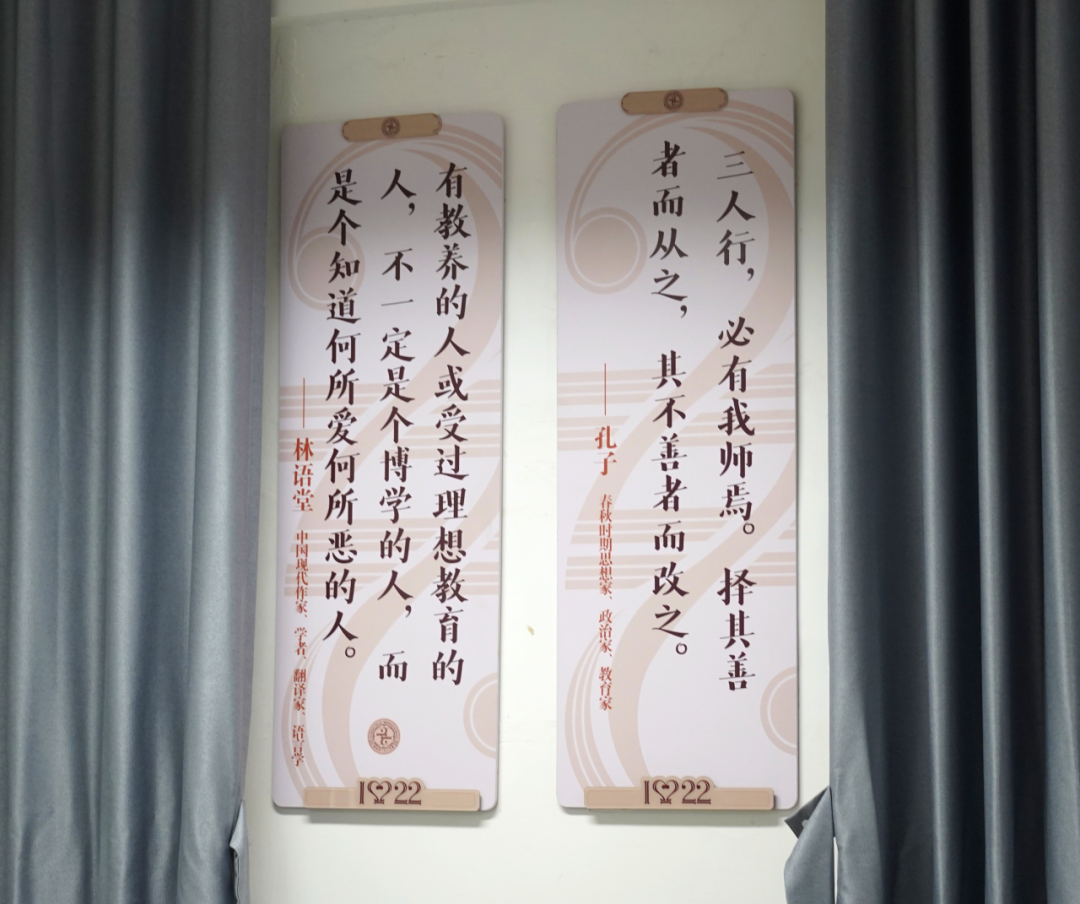 三人行，必有我师焉。择其善
者而从之，其不善者而改之。
——孔子 春秋时期思想家、政治家、教育家
1922
有教养的人或受过理想教育的
人，不一定是个博学的人，而
是个知道何所爱何所恶的人。
——林语堂 中国现代作家、学者、翻译家、语言学
1922